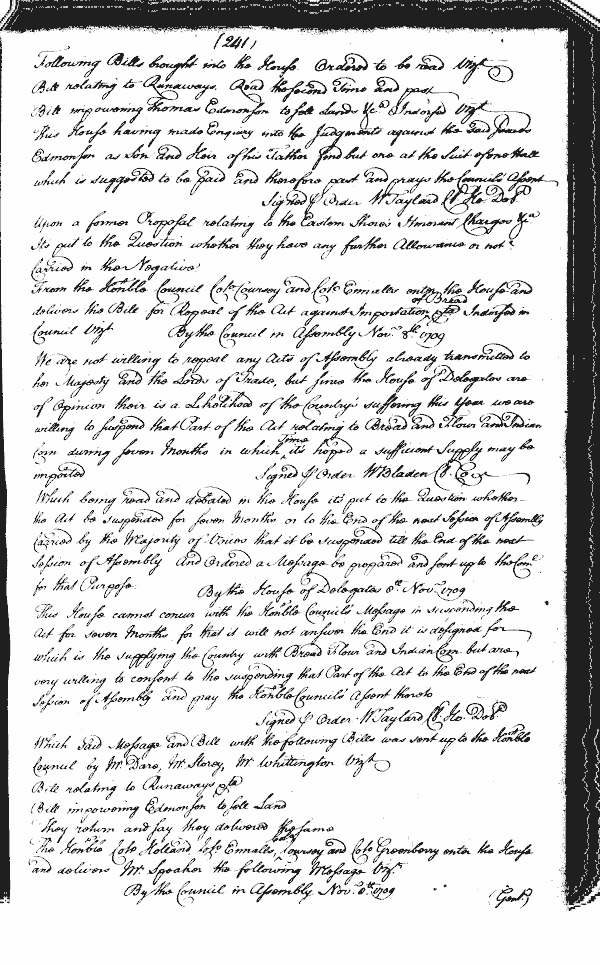 (241)
Following Bills brought into the House Ordered to be read Vizt
Bill relating to Runaways. Read the second Time and past
Bill impowering Thomas Edmonson to sell Lands &ca Indorsed Vizt
This House having made Enquiry into the Judgements against the said
Edmonson as Son and Heir of his Father find but one at the Suit of one Hall
which is suggested to be paid and therefore past and prays the Councils Assent
Signed p Order W Taylard Cl. Ho. Del.
Upon a former Proposal relating to the Eastern Shore's Itinerant Charges &ca
Its put to the Question whether they have any further Allowance or not.
Carried in the Negative
From the Honble Council Colo Coursey and Colo Ennalls enter the House and
delivers the Bill for Repeal of the Act against Importation of Bread &ca Indorsed in
Council Vizt By the Council in Assembly Novr 8th 1709
We are not willing to repeal any Acts of Assembly already transmitted to
her Majesty and the Lords of Trade, but since the House of Delegates are
of Opinion their is a Likelihood of the Country's suffering this Year we are
willing to suspend that Part of this Act relating to Bread and Flour and Indian
Corn during seven Months in which Time its hoped a sufficient Supply may be
imported Signed p Order W Bladen Cl. Co
Which being read and debated in the House its put to the Question whether
the Act be suspended for seven Months or to the End of the next Session of Assembly
Carried by the Majority of Voices that it be suspended till the End of the next
Session of Assembly And Ordered a Message be prepared and sent up to the
for that Purpose. By the House of Delegates 8th Novr 1709
This House cannot concur with the Honble Council's Message in suspending the
Act for seven Months for that it will not answer the End it is designed for
which is the supplying the Country with Bread Flour and Indian Corn but are
very willing to consent to the suspending that Part of the Act to the End of the next
Session of Assembly and pray the Honble Councils' Assent thereto
Signed p Order W Taylard Cl. Ho. Del.
Which said Message and Bill with the following Bills was sent up to the Honble
Council by Mr Dare, Mr Storey, Mr Whittington Vizt
Bill relating to Runaways &ca
Bill impowering Edmonson to sell Land
They return and say they delivered the same
The Honble Colo Holland, Colo Ennalls, Colo Coursey and Colo Greenberry enter the House
and delivers Mr Speaker the following Message Vizt.
By the Council in Assembly Novr 8th 1709
(Gent.)